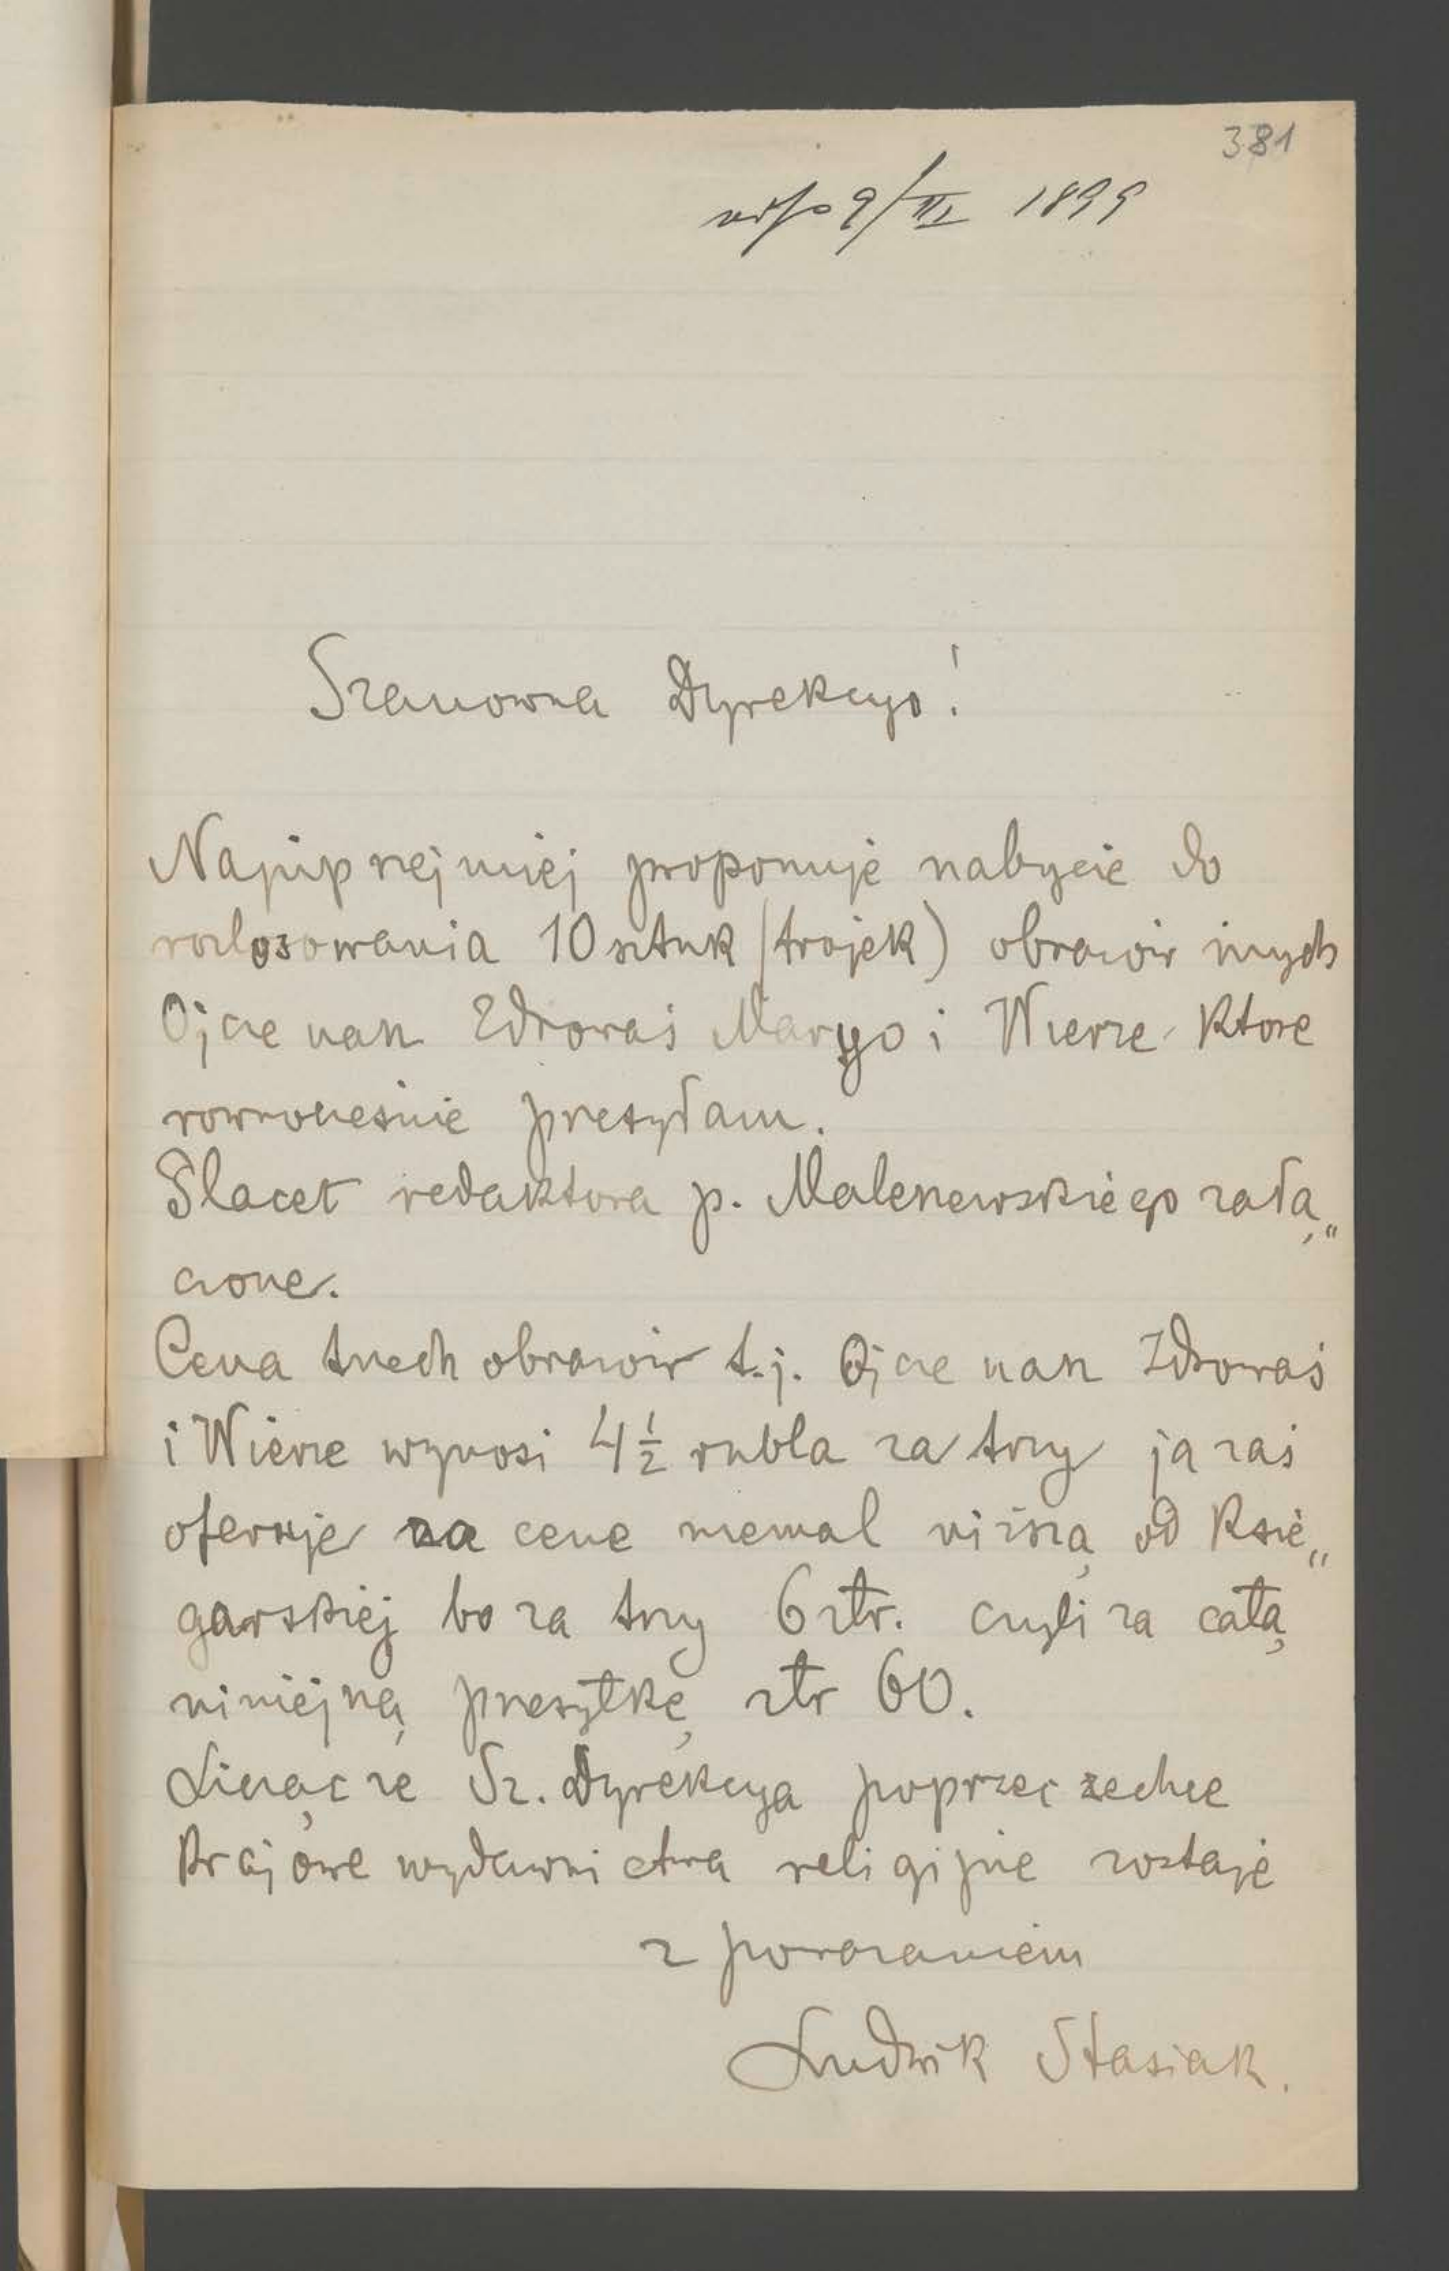 381
odp 9/III 1899
Szanowna Dyrekcyo!
Najuprzejmiej proponuję nabycie do
rozlosowania 10 sztuk (trojek) obrazów mych
Ojcze nasz Zdrowaś Maryo i Wierzę które
rownocześnie przesyłam.
Placet redaktora p. Maleszewskiego załą„
czone.
Cena trzech obrazów t.j. Ojcze nasz Zdrowaś
i Wierzę wynosi 4 1/2 rubla za trzy ja zaś
oferuję za cenę niemal niższą od księ„
garskiej bo za trzy 6 złr. czyli za całą
niniejszą przesyłkę złr 60.
Licząc że Sz. Dyrekcya poprzeć zechce
krajowe wydawnictwa religijne zostaję
z poważaniem
Ludwik Stasiak.